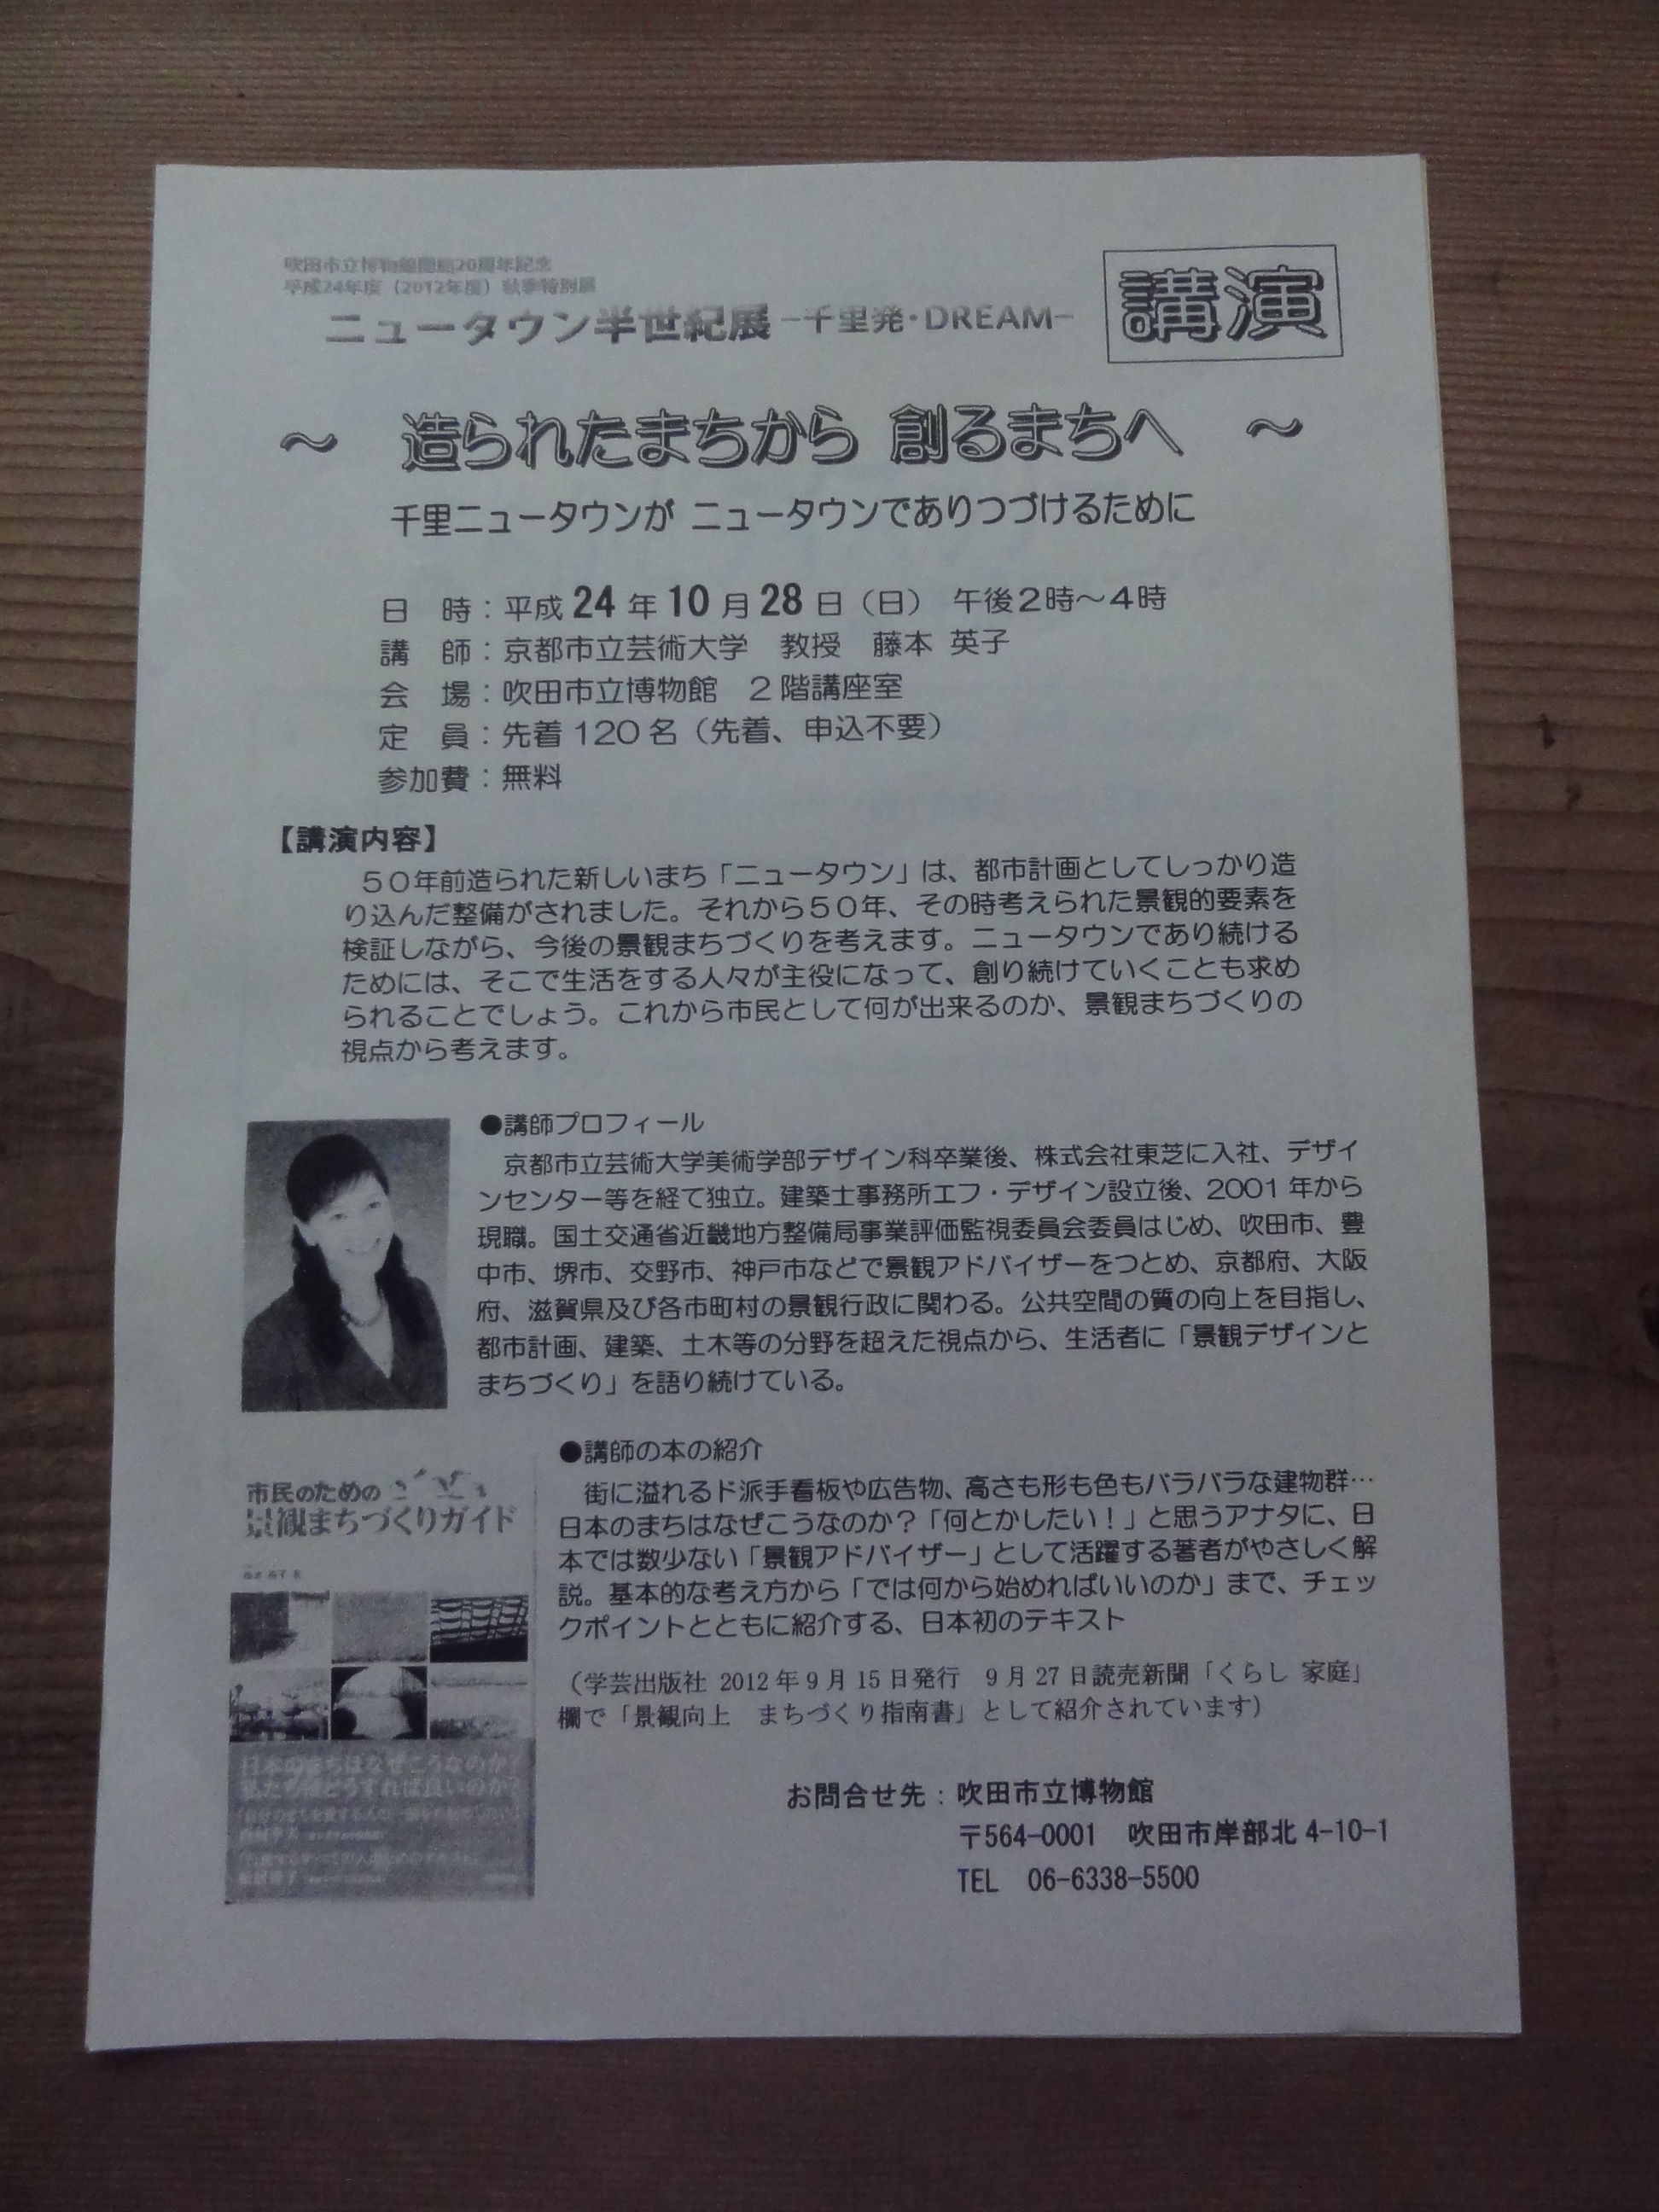 吹田市立博物館開館20周年記念
平成24年度（2012年度）秋季特別展
ニュータウン半世紀展 −千里発・DREAM−
講演
～ 造られたまちから 創るまちへ ～
千里ニュータウンが ニュータウンでありつづけるために
日　時：平成 24 年 10 月 28 日（日）　午後２時～４時
講　師：京都市立芸術大学　教授　藤本 英子
会　場：吹田市立博物館　２階講座室
定　員：先着 120 名（先着、申込不要）
参加費：無料
【講演内容】
５０年前造られた新しいまち「ニュータウン」は、都市計画としてしっかり造
り込んだ整備がされました。それから５０年、その時考えられた景観的要素を
検証しながら、今後の景観まちづくりを考えます。ニュータウンであり続ける
ためには、そこで生活をする人々が主役になって、創り続けていくことも求め
られることでしょう。これから市民として何が出来るのか、景観まちづくりの
視点から考えます。
●講師プロフィール
京都市立芸術大学美術学部デザイン科卒業後、株式会社東芝に入社、デザイ
ンセンター等を経て独立。建築士事務所エフ・デザイン設立後、2001 年から
現職。国土交通省近畿地方整備局事業評価監視委員会委員はじめ、吹田市、豊
中市、堺市、交野市、神戸市などで景観アドバイザーをつとめ、京都府、大阪
府、滋賀県及び各市町村の景観行政に関わる。公共空間の質の向上を目指し、
都市計画、建築、土木等の分野を超えた視点から、生活者に「景観デザインと
まちづくり」を語り続けている。
●講師の本の紹介
街に溢れるド派手看板や広告物、高さも形も色もバラバラな建物群…
日本のまちはなぜこうなのか？「何とかしたい！」と思うアナタに、日
本では数少ない「景観アドバイザー」として活躍する著者がやさしく解
説。基本的な考え方から「では何から始めればいいのか」まで、チェッ
クポイントとともに紹介する、日本初のテキスト
（学芸出版社 2012 年 9 月 15 日発行　9 月 27 日読売新聞「くらし 家庭」
欄で「景観向上　まちづくり指南書」として紹介されています）
市民のための
景観まちづくりガイド
日本のまちはなぜこうなのか？
私たちはどうすれば良いのか？
お問合せ先：吹田市立博物館
〒564-0001　吹田市岸部北 4-10-1
TEL　06-6338-5500